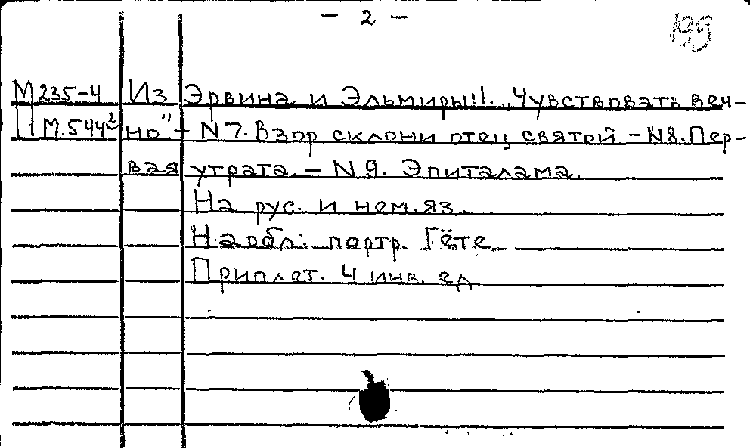 – 2 –
199
М 235-4 Из Эрвина и Эльмиры!!. „Чувствовать веч-
М.544² но" – N 7. Взор склони отец святой – N 8. Пер-
вая утрата. – N 9. Эпиталама.
На рус. и нем. яз.
На обл: портр. Гёте
Приплет. 4 инв. ед